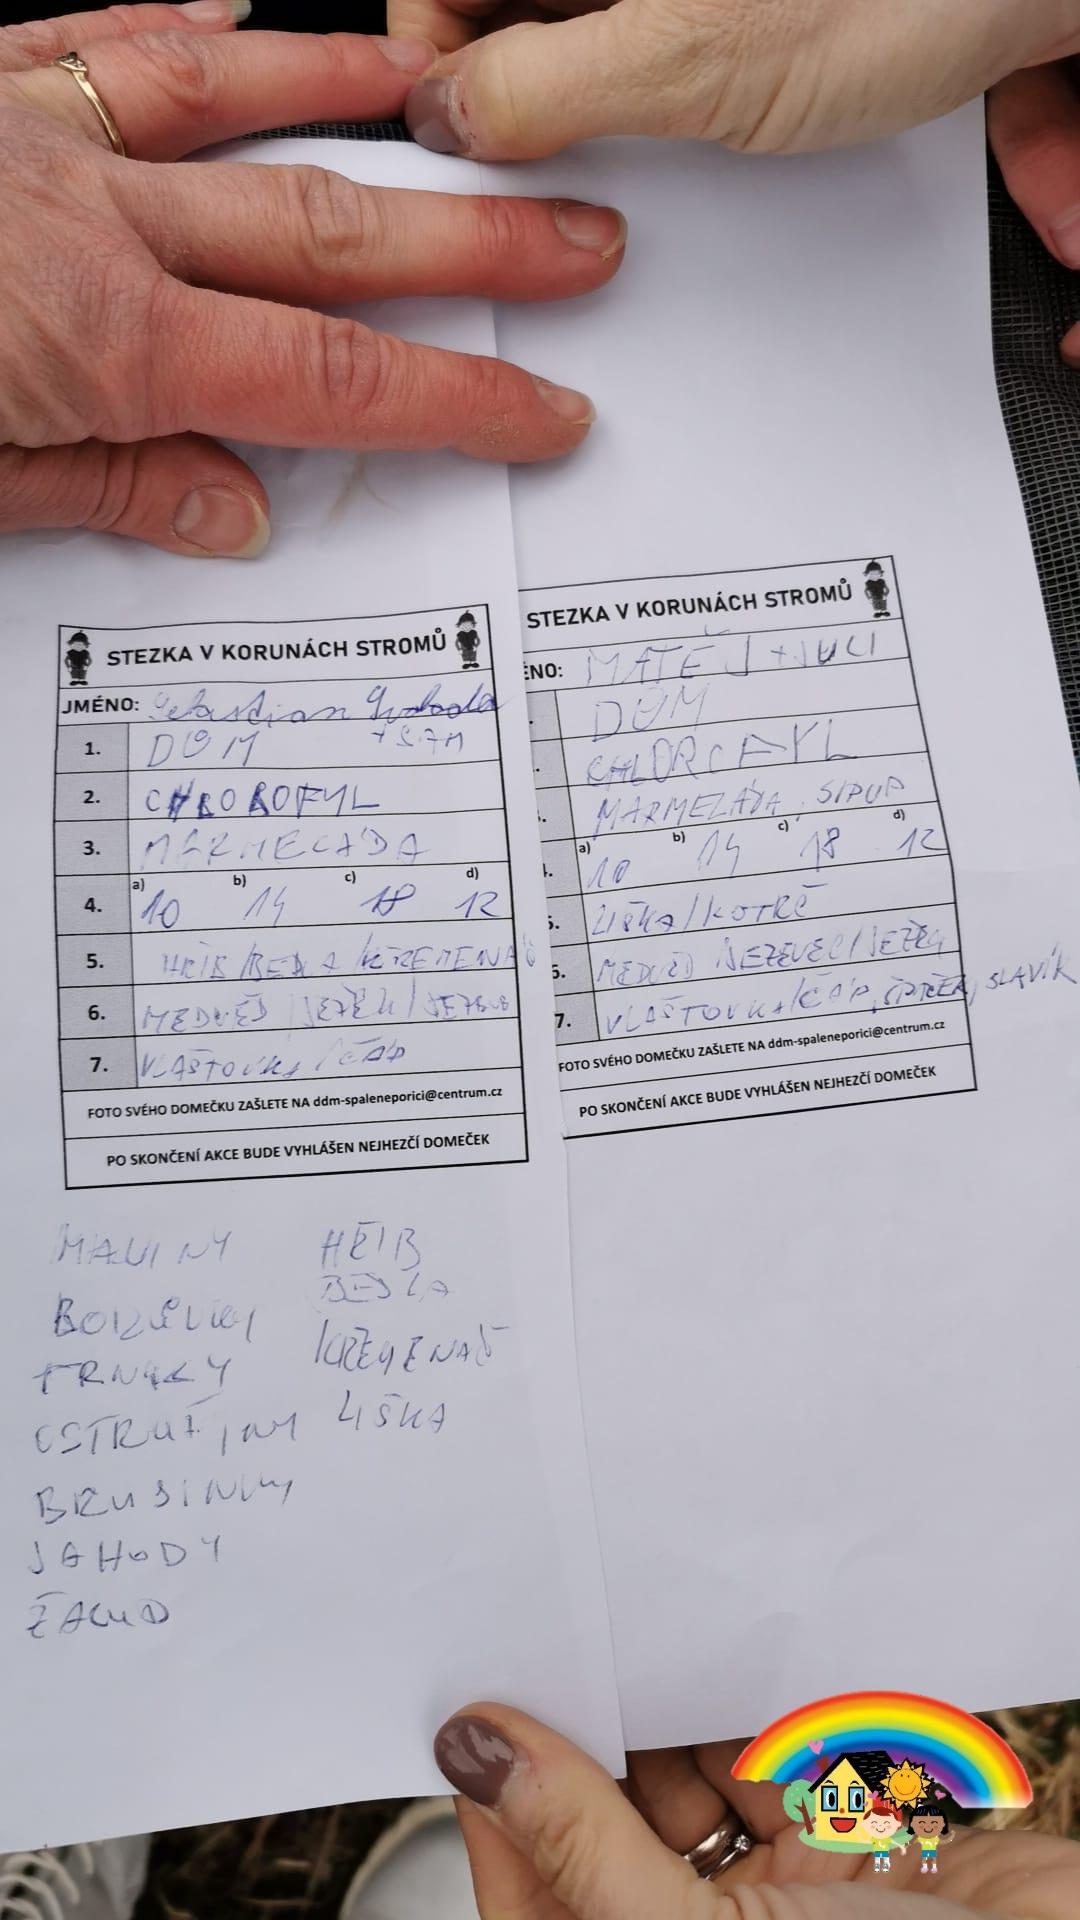 STEZKA V KORUNÁCH STROMŮ
JMÉNO: Sebastian Svoboda
1. DŮM
2. CHLOROFYL
3. MARMELÁDA
4. a) 10 b) 14 c) 18 d) 12
5. HŘIB/BEDLA/KŘEMENÁČ
6. MEDVĚD/JEŽEK/
7. VLAŠTOVKA/ČÁP
FOTO SVÉHO DOMEČKU ZAŠLETE NA ddm-spaleneporici@centrum.cz
PO SKONČENÍ AKCE BUDE VYHLÁŠEN NEJHEZČÍ DOMEČEK
MALINY
BORŮVKY
TRNKY
OSTRUŽINY
BRUSINKY
JAHODY
ŽALUD
HŘIB
BEDLA
KŘEMENÁČ
LIŠKA
STEZKA V KORUNÁCH STROMŮ
ÉNO: MATĚJ + JULI
DŮM
CHLOROFYL
MARMELÁDA, SIRUP
a) 10 b) 14 c) 18 d) 12
5. LIŠKA/KOTRČ
6. MEDVĚD JEZEVEC/JEŽEK
7. VLAŠTOVKA/ČÁP, SLAVÍK
FOTO SVÉHO DOMEČKU ZAŠLETE NA ddm-spaleneporici@centrum.cz
PO SKONČENÍ AKCE BUDE VYHLÁŠEN NEJHEZČÍ DOMEČEK